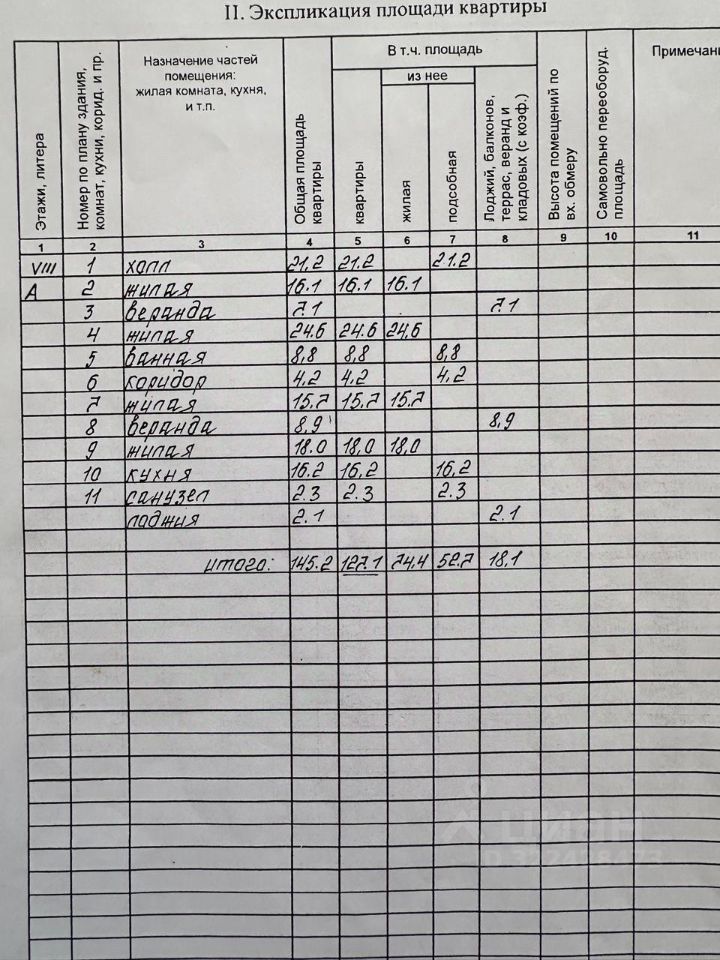 II. Экспликация площади квартиры
Этажи, литера
Номер по плану здания, комнат, кухни, корид. и пр.
Назначение частей помещения: жилая комната, кухня, и т.п.
Общая площадь квартиры
В т.ч. площадь
из нее
квартиры
жилая
подсобная
Лоджий, балконов, террас, веранд и кладовых (с коэф.)
Высота помещений по вх. обмеру
Самовольно переоборуд. площадь
Примечани
1 2 3 4 5 6 7 8 9 10 11
VIII 1 холл 21.2 21.2 21.2
А 2 жилая 16.1 16.1 16.1
3 веранда 7.1 7.1
4 жилая 24.6 24.6 24,6
5 ванная 8,8 8,8 8,8
6 коридор 4.2 4.2 4.2
7 жилая 15.7 15.7 15.7
8 веранда 8.9 8,9
9 жилая 18.0 18,0 18,0
10 кухня 16.2 16,2 16,2
11 санузел 2.3 2.3 2.3
лоджия 2.1 2.1
итого: 145.2 127.1 74.4 52.7 18,1
ЦИАН